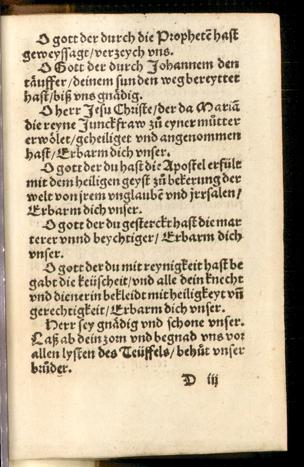 O gott der durch die Prophetē hast
geweyssagt/verzeych vns.
O Gott der durch Johannem den
täuffer/deinem sun den weg bereytter
hast/biß vns gnådig.
O herr Jesu Christe/der da Mariā
die reyne Junckfraw zů eyner mütter
erwölet/geheiliget vnd angenommen
hast/Erbarm dich vnser.
O gott der du hast die Apostel erfült
mit dem heiligen geyst zů bekerung der
welt von jrem vnglaubē vnd jrrsalen/
Erbarm dich vnser.
O gott der du gesterckt hast die mar
terer vnnd beychtiger/ Erbarm dich
vnser.
O gott der du mit reynigkeit hast be
gabt die keüscheit/vnd alle dein knecht
vnd dienerin bekleidt mit heiligkeyt vn̄
gerechtigkeit/Erbarm dich vnser.
Herr sey gnådig vnd schone vnser.
Laß ab dein zorn vnd begnad vns vor
allen lysten des Teüffels/behüt vnser
brüder.
D iij